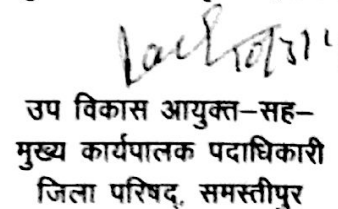 उप विकास आयुक्त–सह–
मुख्य कार्यपालक पदाधिकारी
जिला परिषद्, समस्तीपुर